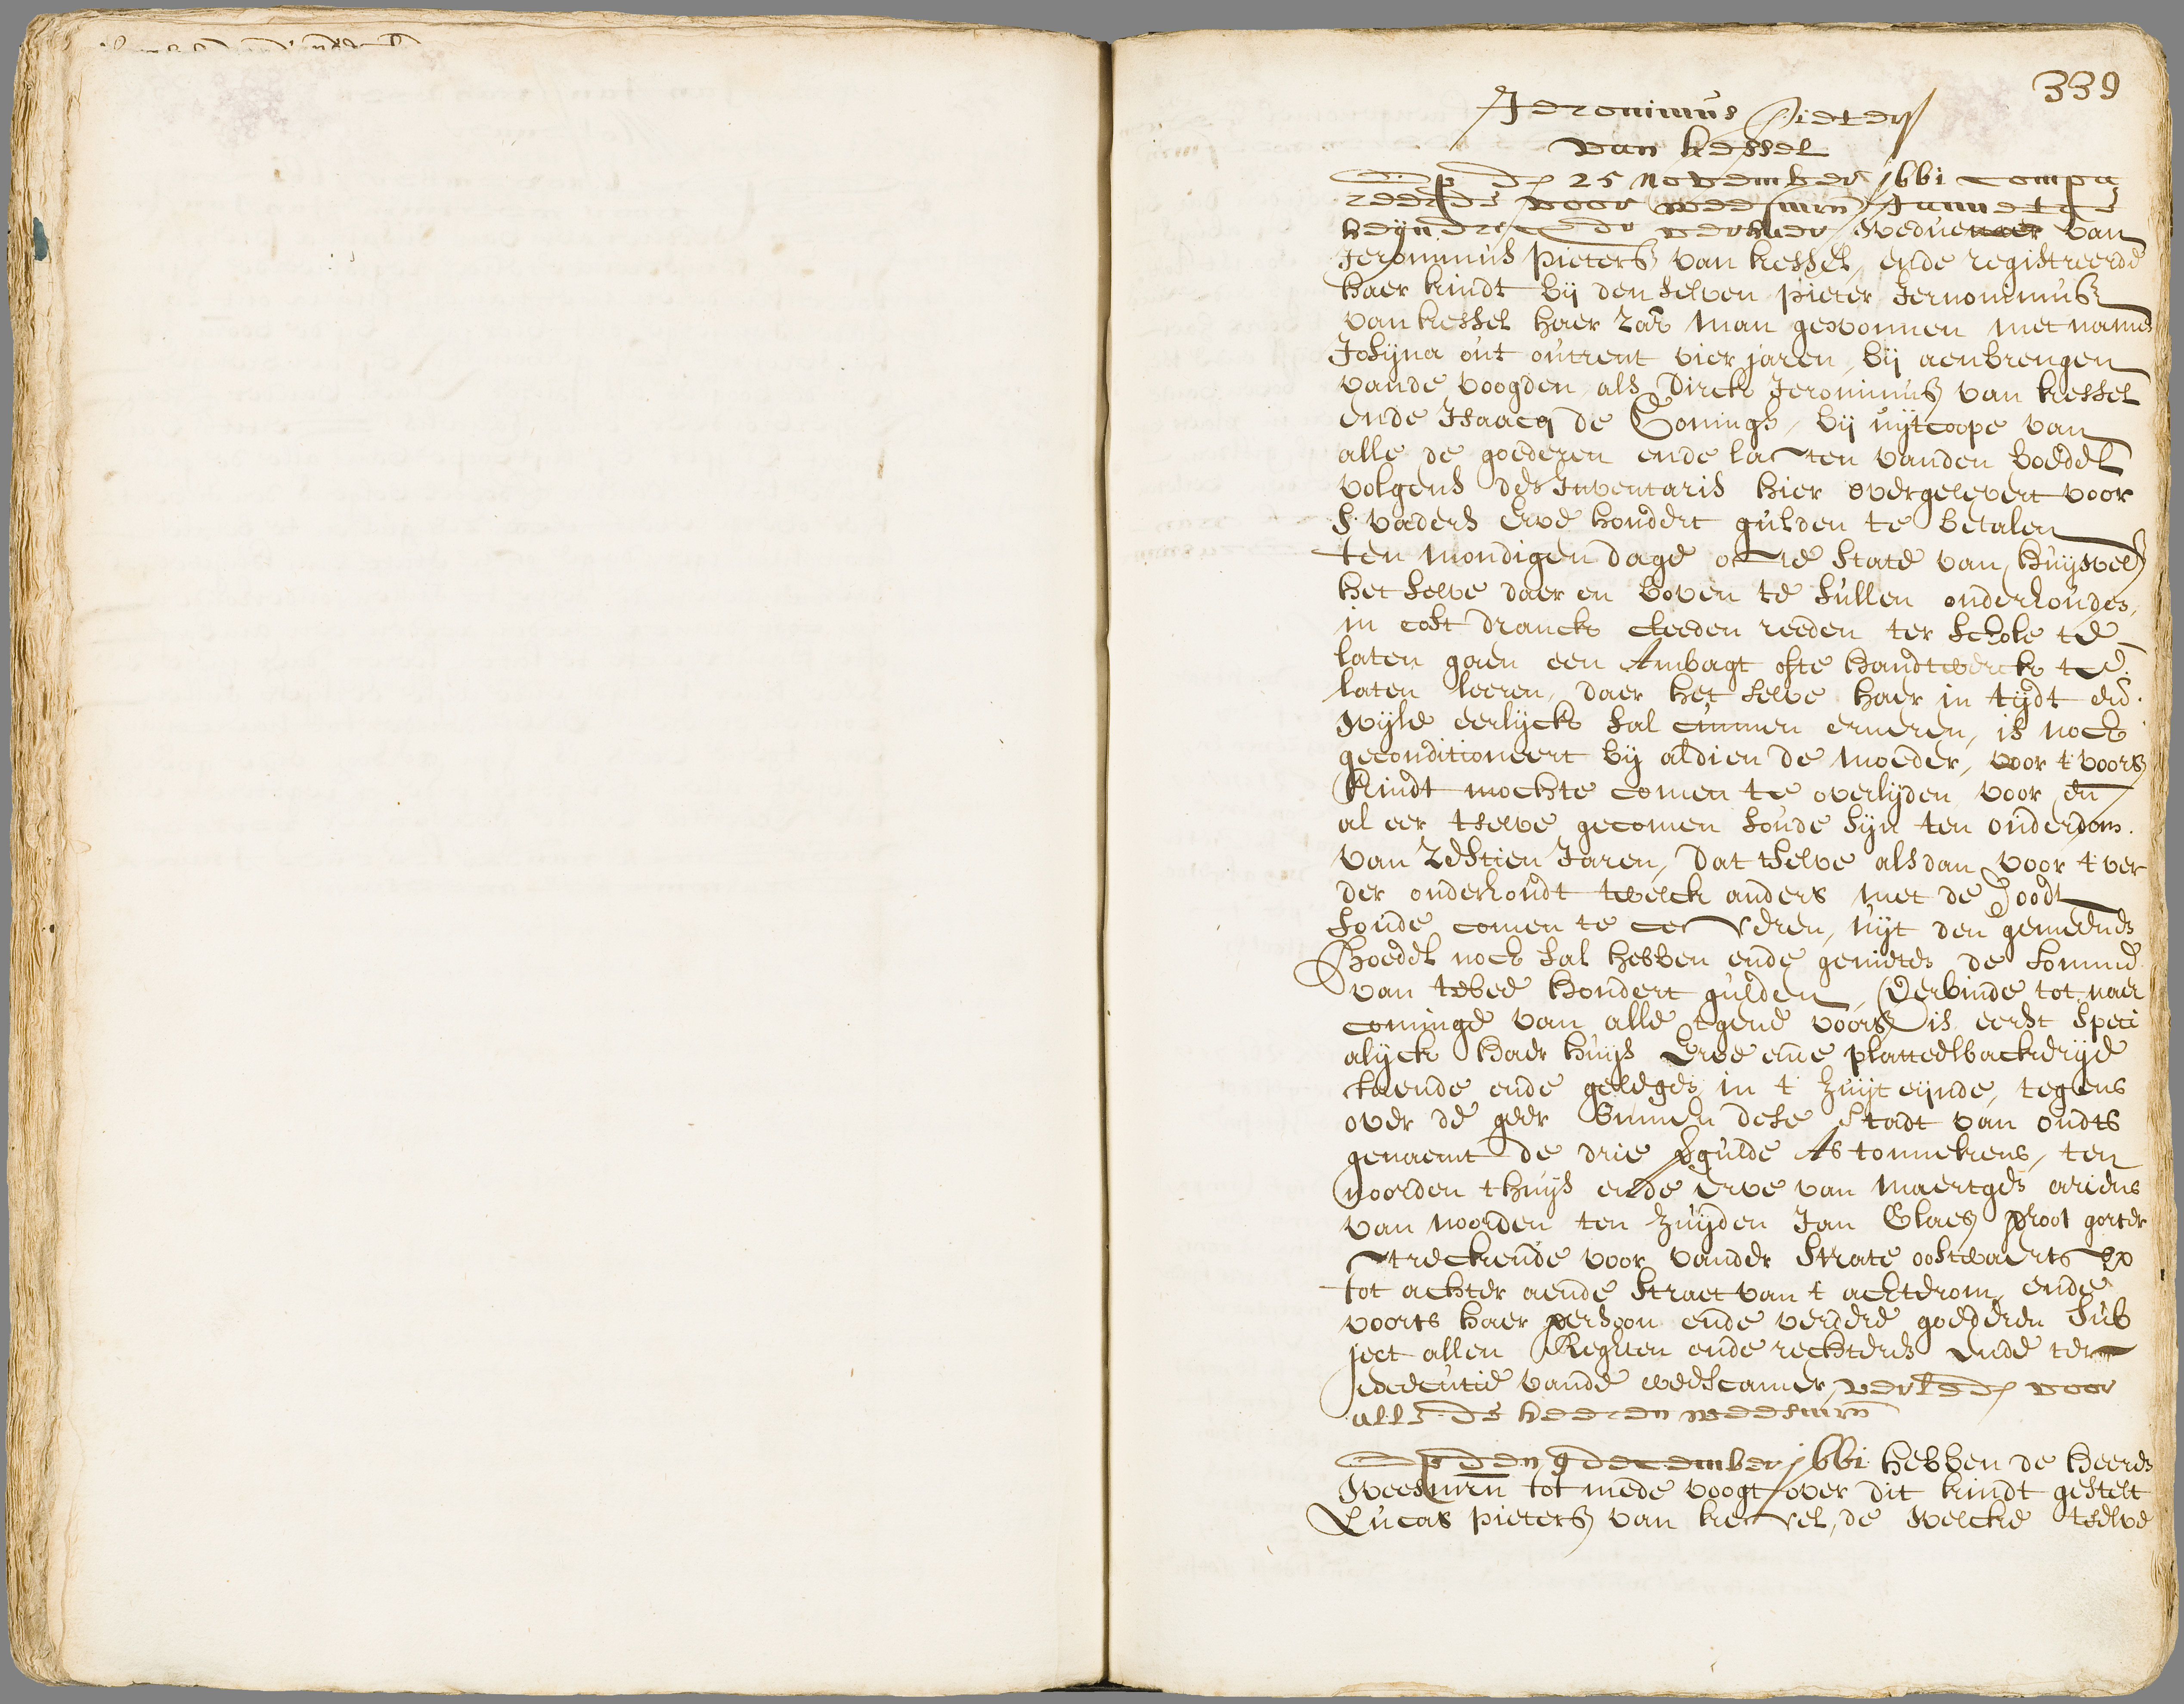 339
Jeronimus Pieters
van Kessel
Op den 25 November 1661 compa
reerde voor weesmrn Jannetge
heyndricx weduewaer van
Jeronimus pieters van kessel, ende registreerde
haer kindt bij den selven pieter Jeronimus
van kessel haer za: man gewonnen met name
Josijna out outrent vier jaren, bij aenbrengen
vande voogden als Dirck Jeronimus van kessel
ende Isaacq de Conings, bij uytcoope van
alle de goederen ende lasten vanden boedel
volgens des Inventaris hier overgelevert voor
s vaders erve hondert gulden te betalen
ten mondigen dage ofte state van huywel
het selve daer en boven te sullen onderhouden,
in cost dranck cleeden reeden ter schole te
laten gaen een Ambagt ofte handtwerck te
laten leeren, daer het selve haer in tijdt en
wijle eerlijck sal cunnen erneren, is noch
geconditioneert bij aldien de moeder, voor t voors
kindt mochte comen te overlijden voor en
al eer tselve gecomen soude sijn ten ouderdom
van zestien Jaren, dat tselve als dan voor t ver
der onderhoudt twelck anders met de doodt
soude comen te cesseren, uijt den gemeenen
boedel noch sal hebben ende genieten de somme
van twee hondert gulden, Verbinde tot naer
cominge van alle tgene voors is eerst speci
alijck haer huys Erve ende platteelbackerije
staende ende gelegen in t Zuijt eijnde, tegens
over de geer binnen dese stadt van oudts
genaemt de drie vergulde Astonnekens, ten
noorden thuys ende erve van Maertge ariens
van noorden ten zuijden Jan Claes groot gorter
streckende voor vander strate oostwaerts op
tot achter aende straet van t achterom, ende
voorts haer persoon ende verdere goederen sub
ject allen Reghten ende rechteren ende ter
executie vande weescamer, verleden voor
alle de heeren weesmrn
Op den 9 december 1661 hebben de heeren
weesmrn tot mede voogt over dit kindt gestelt
Lucas pieters van kessel, de welcke tselve